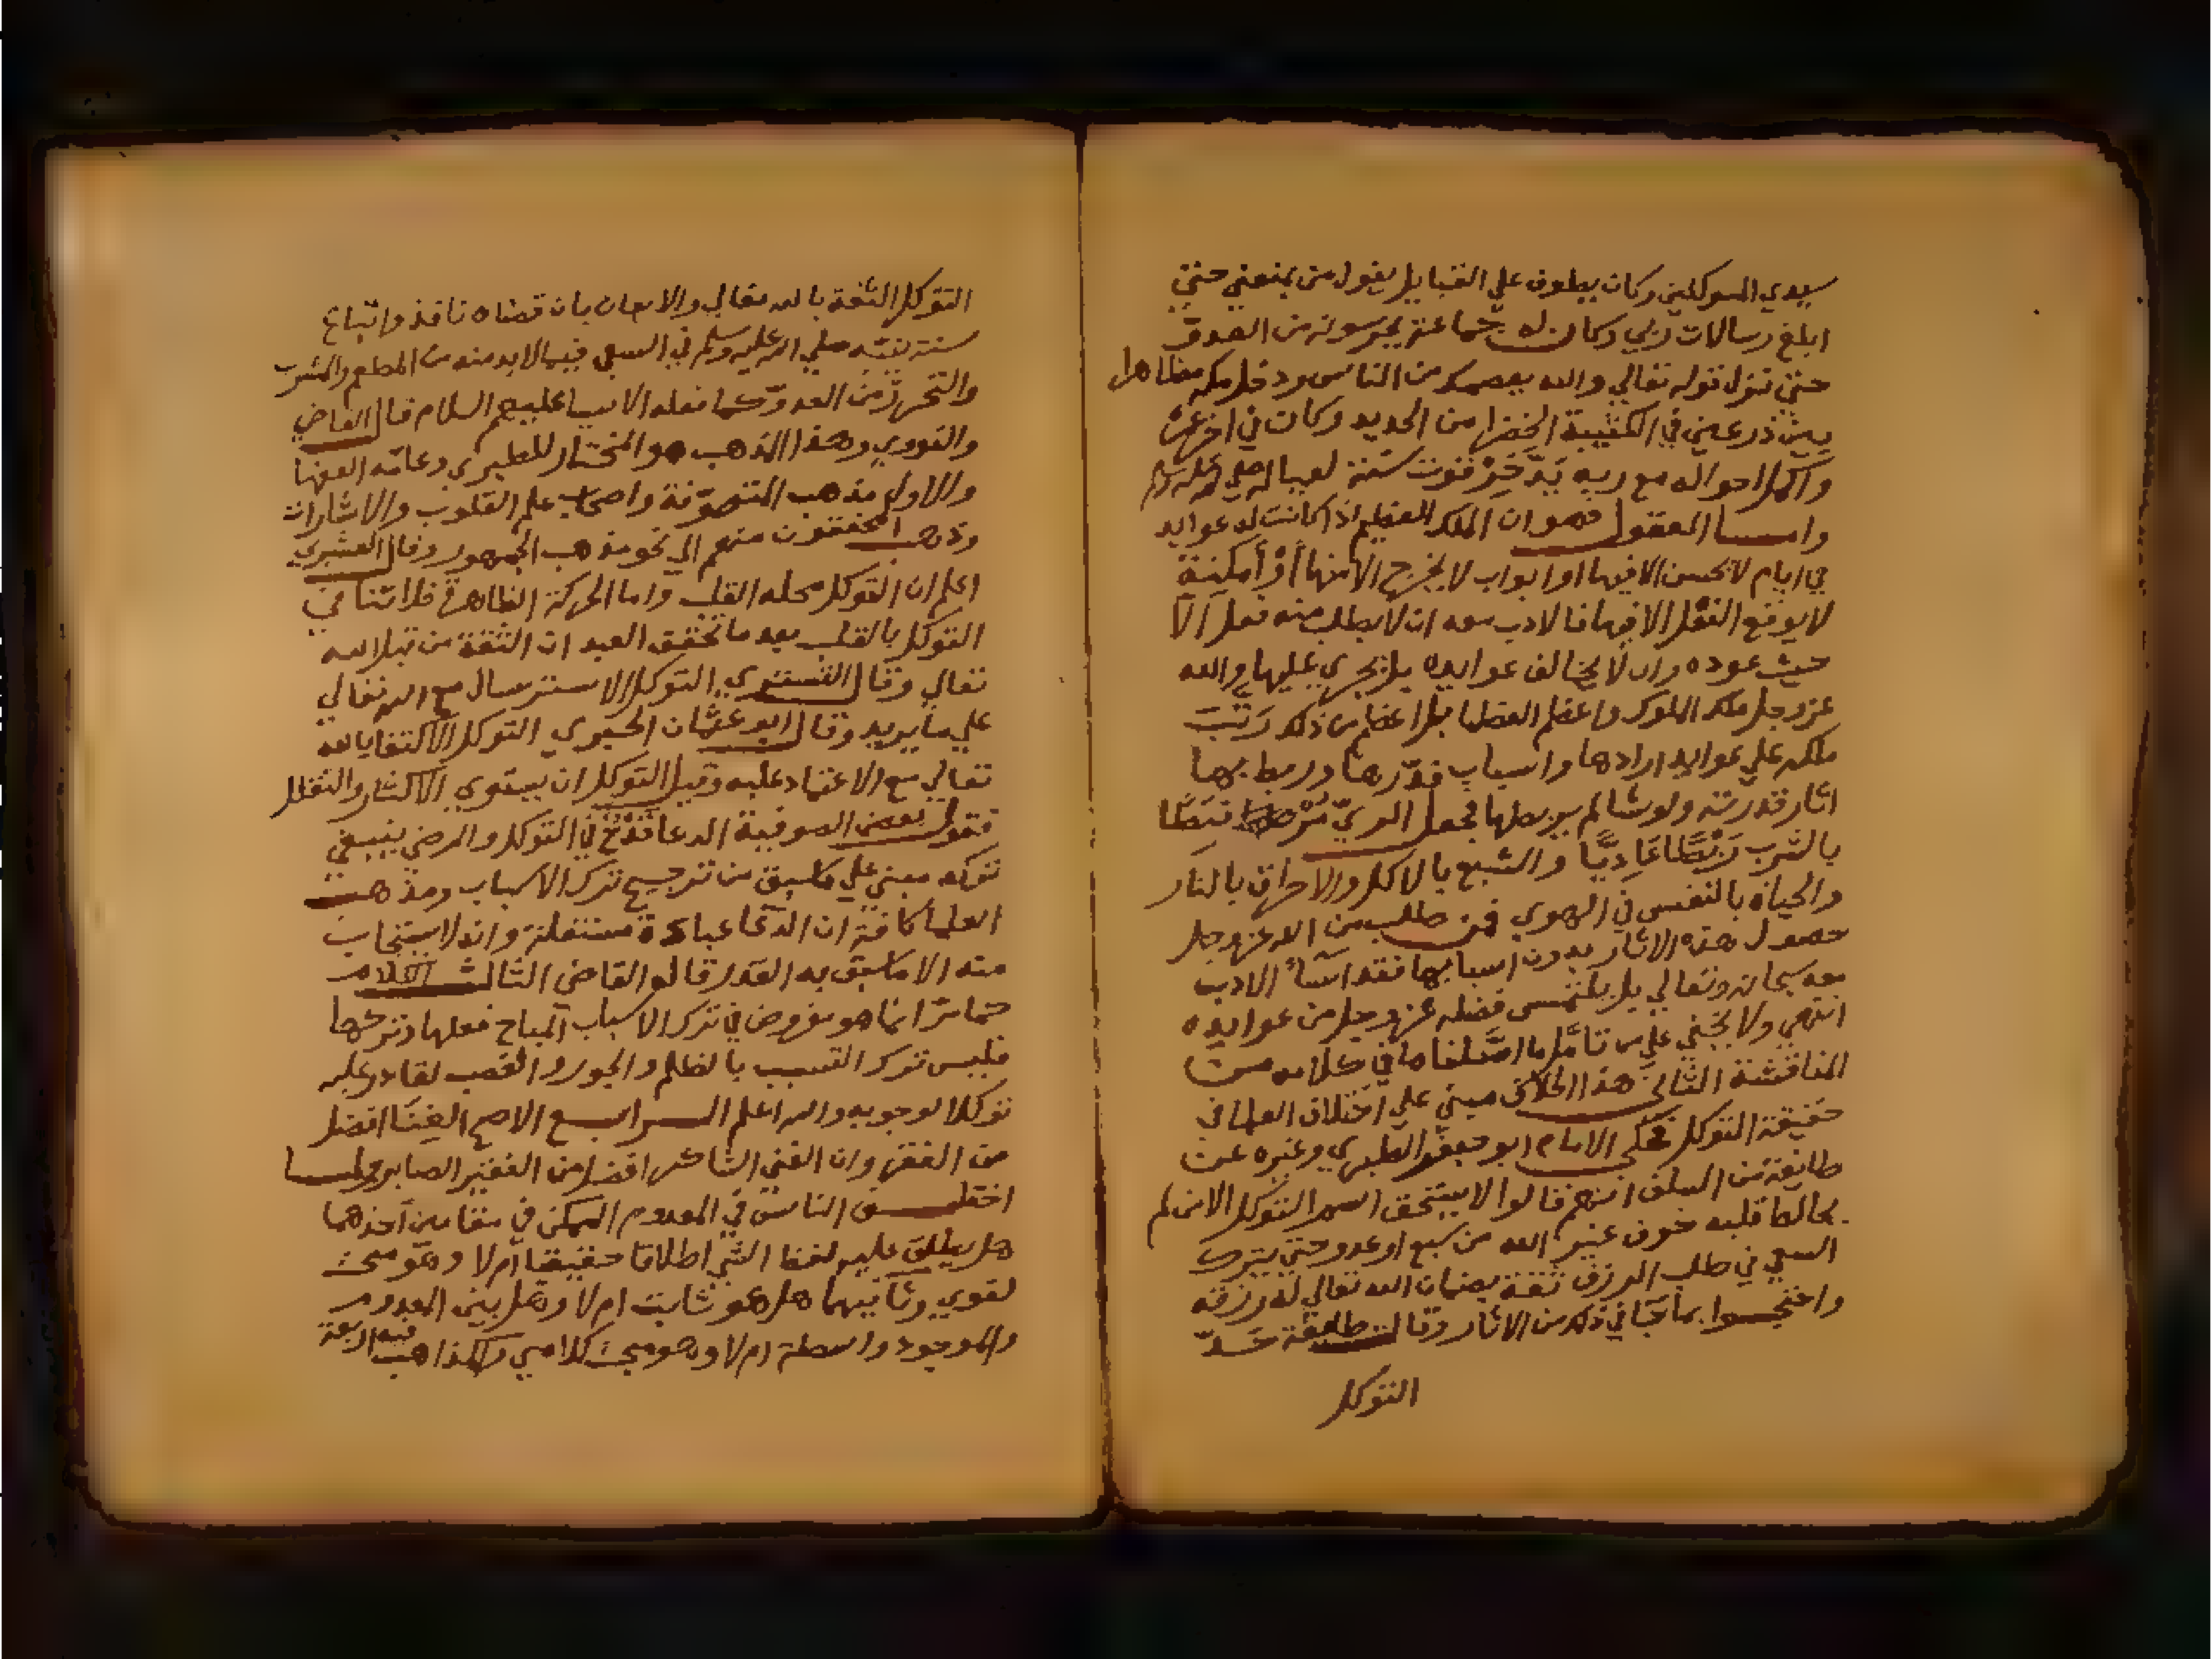 سيدي المتوكلين وكان يطوف علي القبايل يقول من يمنعني حتي
ابلغ رسالات ربي وكان له جماعة يحرسونه من العدو
حتي نزل قوله تعالي والله يعصمك من الناس ودخل مكه مظاهرا
بين درعين في الكتيبة الخضرا من الحديد وكان في اخر عمره
واكمل احواله مع ربه يدخر قوت سنة لعياله صلي الله عليه وسلم
واما المعقول فهو ان الملك العظيم اذا كانت له عوايد
في ايام لا يحسن الا فيها او ابواب لا يخرج الا منها أو أمكنة
لا يوقع الفعل الا فيها فالادب معه ان لا يطلب منه فعل الا
حيث عوده وان لا يخالف عوايده بل يجري عليها والله
عز وجل ملك الملوك واعظم العظما بل اعظم من ذلك رتب
ملكه علي عوايد ارادها واسباب قدرها وربط بها
اثار قدرته ولو شا لم يربطها فجعل الري مرتبطا
بالشرب ربطا عاديا والشبع بالاكل والاحراق بالنار
والحياة بالنفس في الهوي فمن طلب من الله عز وجل
حصول هذه الاثار بدون اسبابها فقد اساء الادب
معه سبحانه وتعالي بل يلتمس فضله عز وجل من عوايده
انتهي ولا يخفي علي من تامل ما اصلفنا ما في كلامه من
المناقشة الثاني هذا الخلاف مبني علي اختلاف العلما في
حقيقة التوكل فحكي الامام ابو جعفر الطبري وغيره عن
طايفة من السلف انهم قالوا لا يستحق اسم التوكل الا من لم
يخالط قلبه خوف غير الله من سبع او عدو حتي يترك
السعي في طلب الرزق ثقة بضمان الله تعالي له رزقه
واحتجوا بما جا في ذلك من الاثار وقالت طايفة حد
التوكل
التوكل الثقة بالله تعالي والايمان بان قضاه نافذ واتباع
سنة نبيه صلي الله عليه وسلم في السعي فيما لا بد منه من المطعم والمشرب
والتحرز من العدو كما فعله الانبيا عليهم السلام قال القاضي
والنووي وهذا المذهب هو المختار للطبري وعامه الفقها
والاول مذهب المتصوفة واصحاب علم القلوب والاشارات
وذهب المحققون منهم الي نحو مذهب الجمهور وقال القشيري
اعلم ان التوكل محله القلب واما الحركة الظاهرة فلا تنافي
التوكل بالقلب بعد ما تحقق العبد ان الثقة من قبل الله
تعالي وقال التستري التوكل الاسترسال مع الله تعالي
علي ما يريد وقال ابو عثمان الحيري التوكل الاكتفا بالله
تعالي مع الاعتماد عليه وقيل التوكل ان يستوي الاكثار والتقلل
فقول بعض الصوفية الدعا قدح في التوكل والرضي ينبغي
تركه مبني علي ما سبق من ترجيح ترك الاسباب ومذهب
العلما كافة ان الدعا عبادة مستقلة وانه لا يستجاب
منه الا ما سبق به القدر قالو القاضي الثالث الكلام
كما مر انما هو مفروض في ترك الاسباب المباح فعلها وتركها
فليس ترك التسبب بالظلم والجور والغصب لقادر عليه
توكلا لوجوبه والله اعلم الرابع الاصح الغنا افضل
من الفقر وان الغني الشاكر افضل من الفقير الصابر ولما
اختلف الناس في المعدوم الممكن في مقامين أحدهما
هل يطلق عليه لفظ الشي اطلاقا حقيقيا ام لا وهو مبحث
لغوي وثانيهما هل هو ثابت ام لا وهل بين المعدوم
والموجود واسطة ام لا وهو مبحث كلامي والمذاهب فيه اربعة